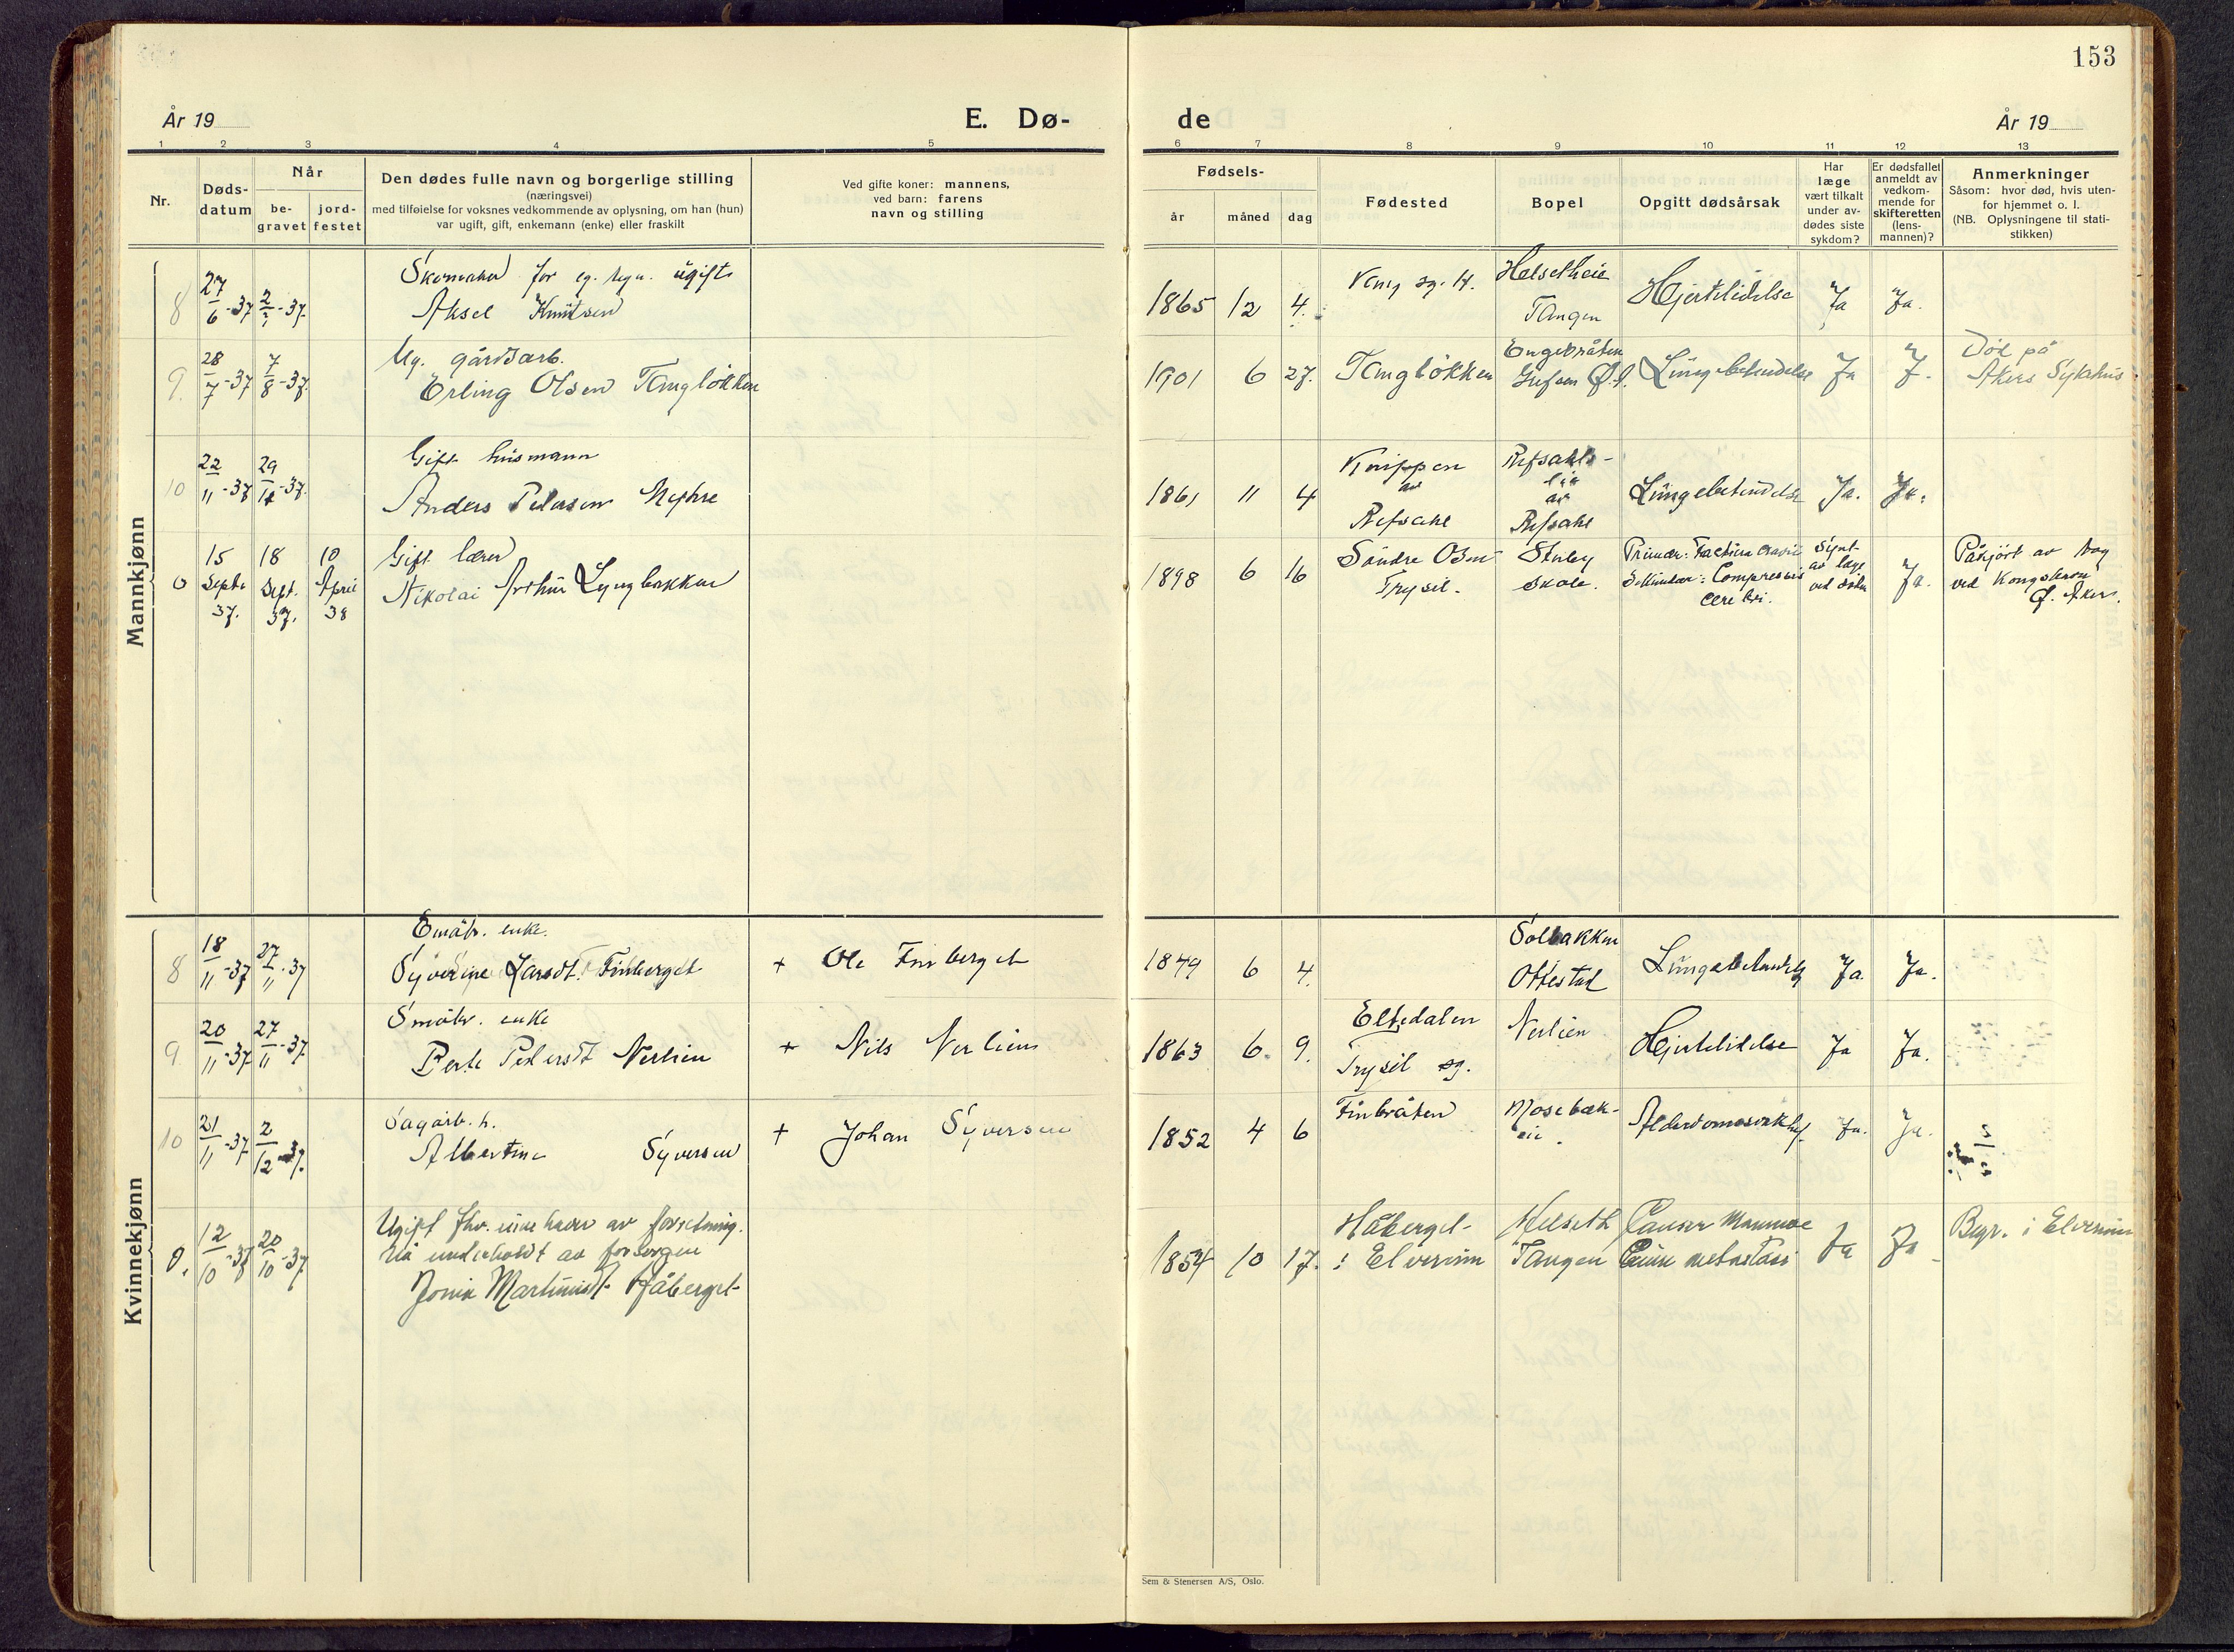 153
År 19
E. Dø-
de
År 19
1 2 3 4 5 6 7 8 9 10 11 12 13
Nr.
Døds-
datum
Når
be-
gravet
jord-
festet
Den dødes fulle navn og borgerlige stilling
(næringsvei)
med tilføielse for voksnes vedkommende av oplysning, om han (hun)
var ugift, gift, enkemann (enke) eller fraskilt
Ved gifte koner: mannens,
ved barn: farens
navn og stilling
Fødsels-
år
måned
dag
Fødested
Bopel
Opgitt dødsårsak
Har
læge
vært tilkalt
under av-
dødes siste
sykdom?
Er dødsfallet
anmeldt av
vedkom-
mende for
skifteretten
(lens-
mannen)?
Anmerkninger
Såsom: hvor død, hvis uten-
for hjemmet o. l.
(NB. Oplysningene til stati-
stikken)
Mannkjønn
8
27/6-37
Skomaker for eg. regn. ugift
Aksel Knutsen
1865 12 4.
Helsetheie
Tangen
Hjertelidelse
Ja
Ja.
9.
28/7-37
7/8-37.
Ug. gårdsarb.
Erling Olsen Tangløkken
1901 6 27.
Tangløkken
Engebråten
Grefsen Ø.A.
Lungebetendelse
Ja
J.
Död på
Akers Sykehus
10
22/11-37
29/11-37.
Gift husmann
Anders Pedersen Nephre
1861 11 4
Knippen
av
Refsahl
Refsahls-
lia
av
Refsahl
Lungebetendelse
Ja.
Ja.
0
15
Septr
37.
18
Sept.
37.
10
April
38
Gift lærer
Nikolai Arthur Lyngbakken
1898 6 16
Söndre Osen
Trysil.
Stenby
skole.
Primær: Fractura cranii
Sekundær: Compressio
cerebri.
Synt
av læge
ved döden
Ja.
Påkjört av vog
ved Kongskron
Ø. Aker.
Kvinnekjønn
8
18/11-37
27/11-37
Småbr. enke.
Syverine Larsdt. Finberget
+ Ole Finberget
1879 6 4.
Solbakken
Ottestad
Lungebetendelse
Ja
Ja.
9
20/11-37
27/11-37
Småbr. enke
Berte Pedersdt Nerlien
+ Nils Nerlien
1863 6. 9.
Eltdalen
Trysil sg.
Nerlien
Hjertelidelse
Ja
Ja.
10
21/11-37
2/12-37.
Sagarb. h.
Albertine Syversen
+ Johan Syversen
1852 4 6
Finbråten
Mosebæk-
eie.
Alderdomssvakhet
Ja.
Ja.
0.
12/10-37
20/10-37
Ugift fhv. innehaver av forretning.
nå underholdt av forsorgen
Martinusdt. Håberget
1854 10 17.
Håberget
i Elverum
Helseth
Tangen
Cancer Mammae
metastasi
Ja
Ja
Begr. i Elverum
Sem & Stenersen A/S, Oslo.